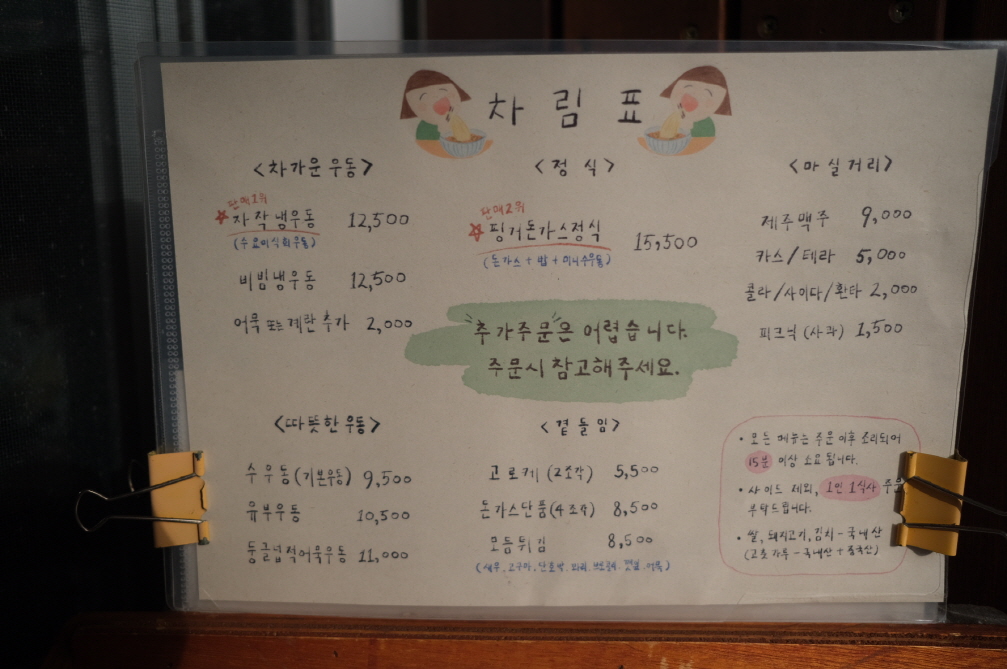 차림표
<차가운 우동>
판매1위
자작냉우동 12,500
비빔냉우동 12,500
어묵 또는 계란 추가 2,000
<정식>
판매2위
핑거돈가스정식 15,500
(돈가스 + 밥 + 미니수우동)
<마실거리>
제주맥주 9,000
카스/테라 5,000
콜라/사이다/환타 2,000
피크닉 (사과) 1,500
"추가주문"은 어렵습니다.
주문시 참고해주세요.
<따뜻한 우동>
수우동(기본우동) 9,500
유부우동 10,500
둥글넙적어묵우동 11,000
<곁들임>
고로케 (2조각) 5,500
돈가스단품(4조각) 8,500
모듬튀김 8,500
(새우. 고구마. 단호박.
• 모든 메뉴는 주문 이후 조리되어
15분 이상 소요 됩니다.
• 사이드 제외, 1인 1식사 주문
부탁드립니다.
• 쌀, 돼지고기, 김치 - 국내산
(고춧가루 - 국내산 + 중국산)